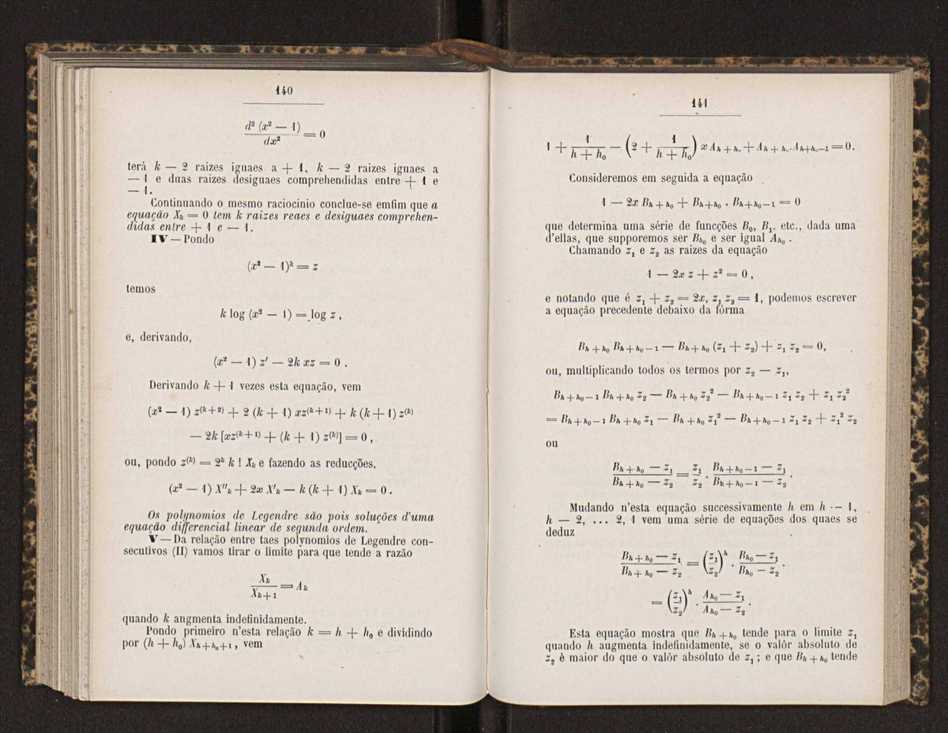 140
d² (x² — 1) / dx² = 0
terá k — 2 raizes iguaes a + 1, k — 2 raizes iguaes a
— 1 e duas raizes desiguaes comprehendidas entre + 1 e
— 1.
Continuando o mesmo raciocinio conclue-se emfim que a
equação Xₖ = 0 tem k raizes reaes e desiguaes comprehen-
didas entre + 1 e — 1.
IV — Pondo
(x² — 1)ᵏ = z
temos
k log (x² — 1) = log z,
e, derivando,
(x² — 1) z′ — 2k xz = 0.
Derivando k + 1 vezes esta equação, vem
(x² — 1) z⁽ᵏ⁺²⁾ + 2 (k + 1) xz⁽ᵏ⁺¹⁾ + k (k + 1) z⁽ᵏ⁾
— 2k [xz⁽ᵏ⁺¹⁾ + (k + 1) z⁽ᵏ⁾] = 0,
ou, pondo z⁽ᵏ⁾ = 2ᵏ k ! Xₖ e fazendo as reducções,
(x² — 1) X″ₖ + 2x X′ₖ — k (k + 1) Xₖ = 0.
Os polynomios de Legendre são pois soluções d'uma
equação differencial linear de segunda ordem.
V — Da relação entre taes polynomios de Legendre con-
secutivos (II) vamos tirar o limite para que tende a razão
Xₖ / Xₖ₊₁ = Aₖ
quando k augmenta indefinidamente.
Pondo primeiro n'esta relação k = h + h₀ e dividindo
por (h + h₀) X_{h+h₀+1}, vem
141
1 + 1/(h + h₀) — (2 + 1/(h + h₀)) x A_{h+h₀} + A_{h+h₀} . A_{h+h₀—1} = 0.
Consideremos em seguida a equação
1 — 2x B_{h+h₀} + B_{h+h₀} . B_{h+h₀—1} = 0
que determina uma série de funcções B₀, B₁, etc., dada uma
d'ellas, que supporemos ser B_{h₀} e ser igual A_{h₀}.
Chamando z₁ e z₂ as raizes da equação
1 — 2x z + z² = 0,
e notando que é z₁ + z₂ = 2x, z₁ z₂ = 1, podemos escrever
a equação precedente debaixo da fórma
B_{h+h₀} B_{h+h₀—1} — B_{h+h₀} (z₁ + z₂) + z₁ z₂ = 0,
ou, multiplicando todos os termos por z₂ — z₁,
B_{h+h₀—1} B_{h+h₀} z₂ — B_{h+h₀} z₂² — B_{h+h₀—1} z₁ z₂ + z₁ z₂²
= B_{h+h₀—1} B_{h+h₀} z₁ — B_{h+h₀} z₁² — B_{h+h₀—1} z₁ z₂ + z₁² z₂
ou
(B_{h+h₀} — z₁) / (B_{h+h₀} — z₂) = z₁/z₂ . (B_{h+h₀—1} — z₁) / (B_{h+h₀—1} — z₂).
Mudando n'esta equação successivamente h em h — 1,
h — 2, ... 2, 1 vem uma série de equações dos quaes se
deduz
(B_{h+h₀} — z₁) / (B_{h+h₀} — z₂) = (z₁/z₂)ʰ . (B_{h₀} — z₁) / (B_{h₀} — z₂).
= (z₁/z₂)ʰ . (A_{h₀} — z₁) / (A_{h₀} — z₂).
Esta equação mostra que B_{h+h₀} tende para o limite z₁
quando h augmenta indefinidamente, se o valôr absoluto de
z₂ è maior do que o valôr absoluto de z₁ ; e que B_{h+h₀} tende